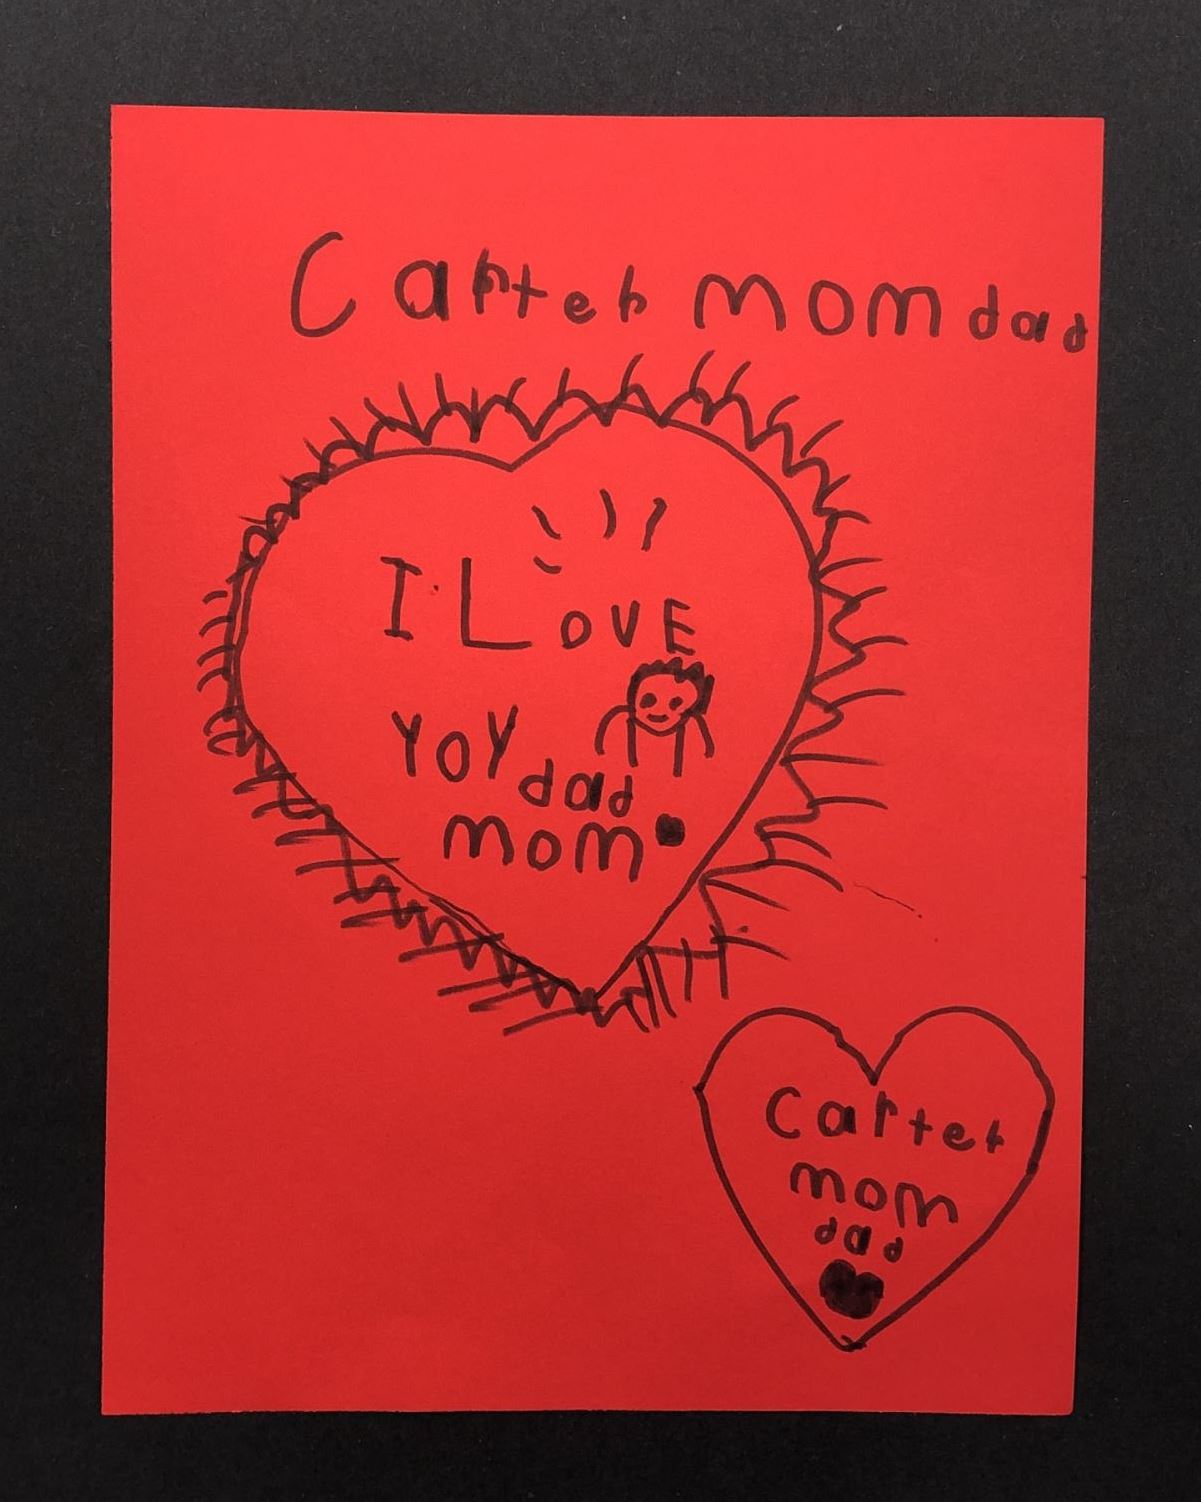 Carter mom dad
I LOVE
YOY dad
mom
Carter
mom
dad